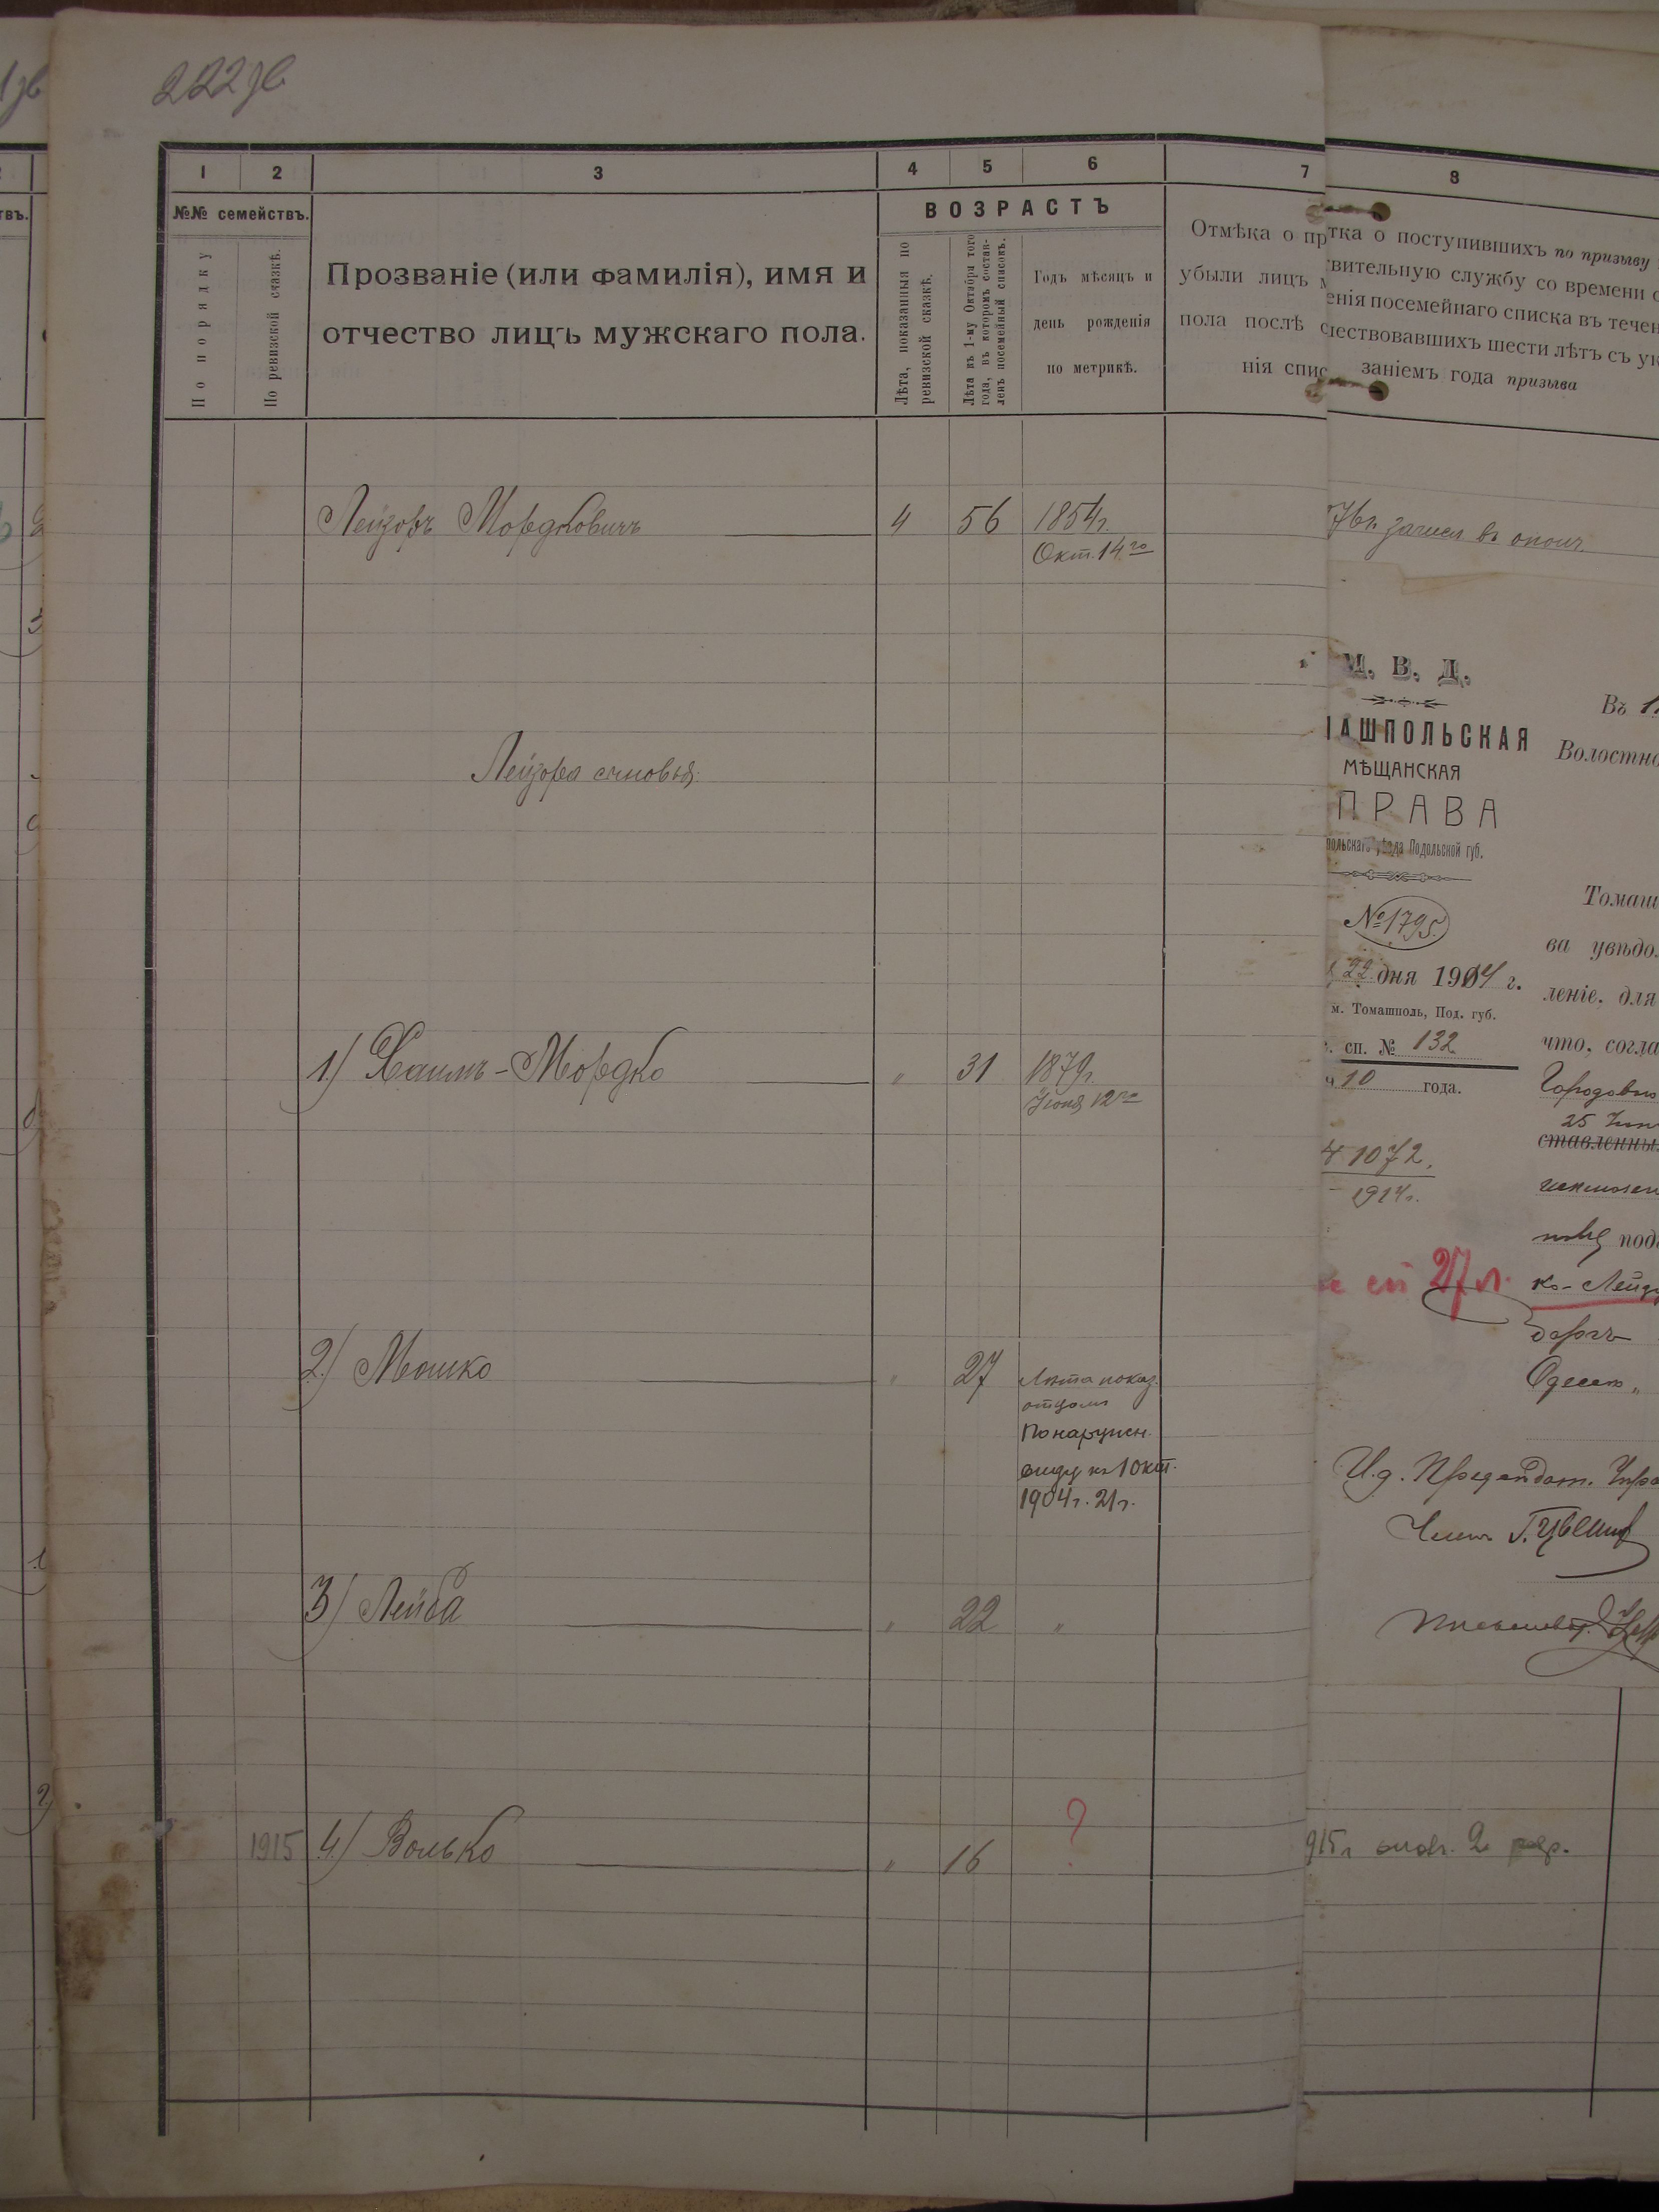 222
1 2 3 4 5 6 7
№№ семействъ.
По порядку
По ревизской сказкѣ.
Прозваніе (или фамилія), имя и
отчество лицъ мужскаго пола.
ВОЗРАСТЪ
Лѣта, показанныя по
ревизской сказкѣ.
Лѣта къ 1-му Октября того
года, въ которомъ состав-
ленъ посемейный списокъ.
Годъ мѣсяцъ и
день рожденія
по метрикѣ.
Отмѣка о пр
убыли лицъ
пола послѣ с
нія спис
8
тка о поступившихъ по призыву
вительную службу со времени
енія посемейнаго списка въ течен
шествовавшихъ шести лѣтъ съ ук
заніемъ года призыва
Лейзоръ Мордковичъ 4 56 1854г.
Окт. 14го
зачисл въ ополч.
Лейзора сыновья:
1) Хаимъ-Мордко " 31 1879г.
Іюня 12го
2) Мошко " 27 Лѣта показ.
отцомъ
По наружн.
виду къ 1 окт.
1904г. 21г.
3) Лейба " 22 "
1915 4) Волько " 16 ?
915г 2 разр.
М. В. Д.
АШПОЛЬСКАЯ
МѢЩАНСКАЯ
ПРАВА
польскаго уѣзда Подольской губ.
№ 1795.
22 дня 1904 г.
м. Томашполь, Под. губ.
сп. № 132
10 года.
1072.
1914г.
27 л.
Въ 1
Волостно
Томаш
ва увѣдо
леніе, для
что, согла
Городовы
25
ставленны
под
ко-Лейз
Одесс
И.д. Предсѣдат. Упра
Членъ Г.